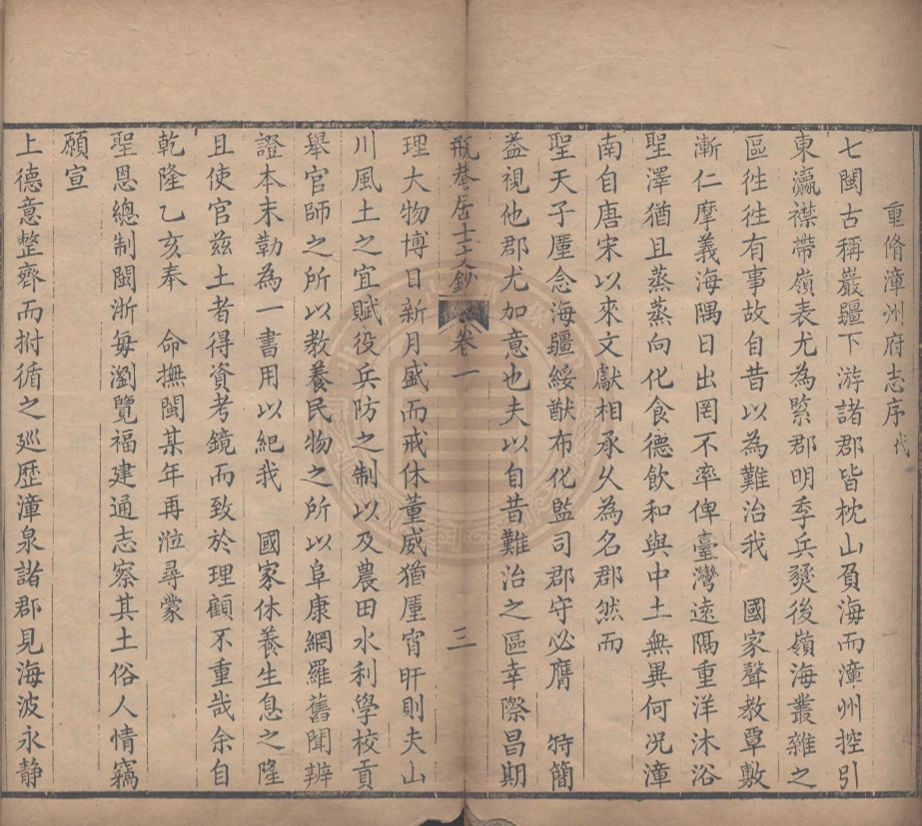 重脩漳州府志序代
七閩古稱巖疆下游諸郡皆枕山負海而漳州控引
東瀛襟帶嶺表尤為緊郡明季兵燹後嶺海叢雜之
區徃徃有事故自昔以為難治我 國家聲教覃敷
漸仁摩義海隅日出罔不率俾臺灣遠隅重洋沐浴
聖澤猶且蒸蒸向化食德飲和與中土無異何況漳
南自唐宋以來文獻相承久為名郡然而
聖天子厪念海疆綏猷布化監司郡守必膺 特簡
葢視他郡尤加意也夫以自昔難治之區幸際昌期
瓶菴居士文鈔 卷一 三
理大物博日新月盛而戒休董威猶厪宵旰則夫山
川風土之宜賦役兵防之制以及農田水利學校貢
舉官師之所以教養民物之所以阜康網羅舊聞辨
證本末勒為一書用以紀我 國家休養生息之隆
且使官兹土者得資考鏡而致於理顧不重哉余自
乾隆乙亥奉 命撫閩某年再涖尋蒙
聖恩總制閩浙毎瀏覽福建通志察其土俗人情竊
願宣
上德意整齊而拊循之廵歷漳泉諸郡見海波永静